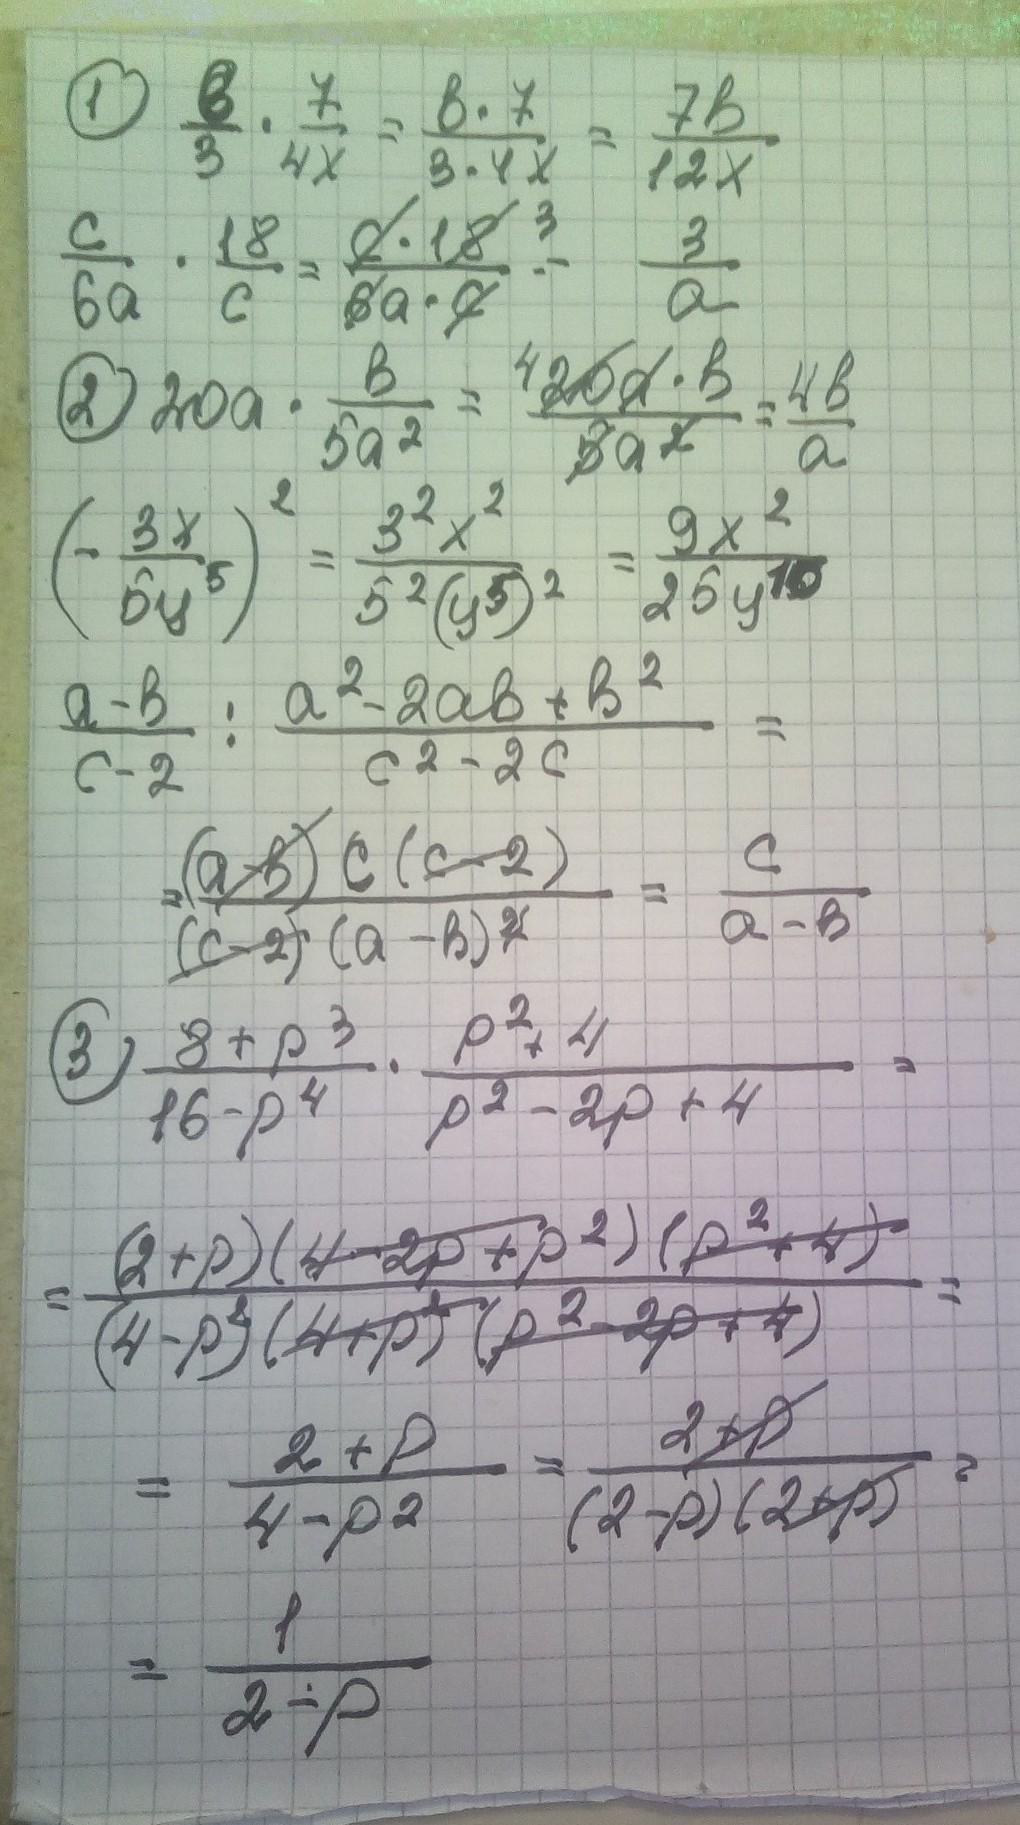 ① в/3 · 7/4x = в·7/3·4x = 7в/12x
c/6a · 18/c = c·18 3/6a·c = 3/a
② 20a · в/5a² = 4 20a·в/5a² = 4в/a
(- 3x/5y⁵)² = 3²x²/5²(y⁵)² = 9x²/25y¹⁰
a-в/c-2 : a²-2aв+в²/c²-2c =
= (a-в) c (c-2)/(c-2) (a-в)² = c/a-в
③ 8+p³/16-p⁴ · p²+4/p²-2p+4 =
= (2+p)(4-2p+p²)(p²+4)/(4-p²)(4+p²)(p²-2p+4) =
= 2+p/4-p2 = 2+p/(2-p)(2+p) =
= 1/2-p